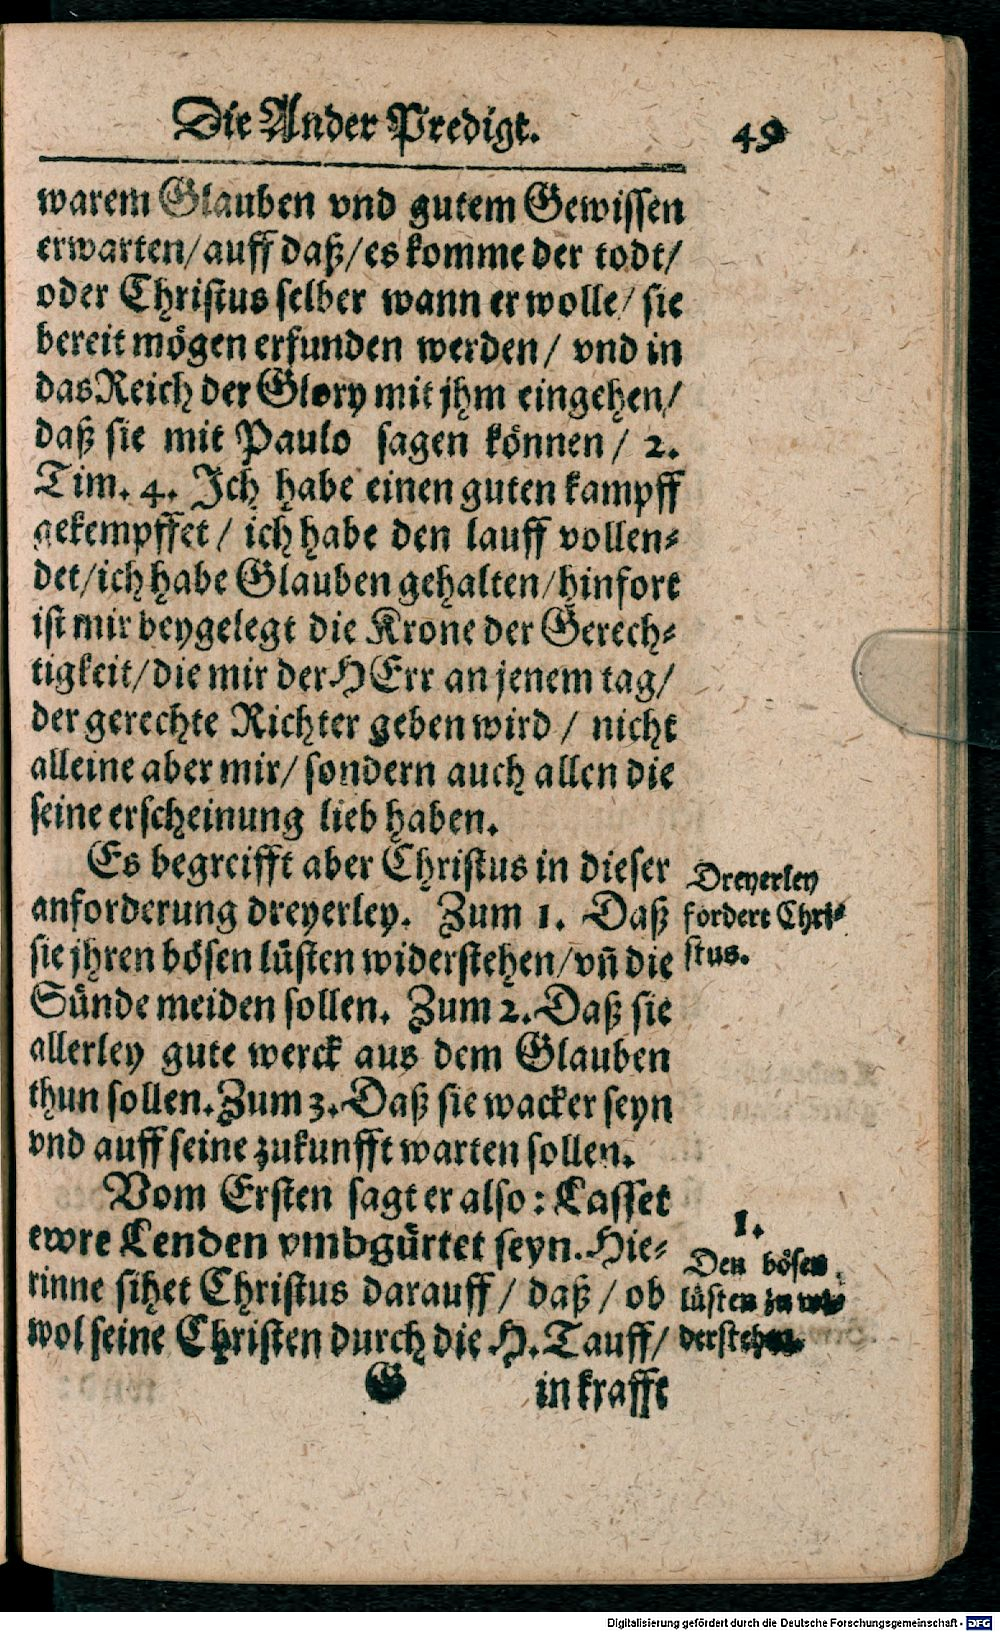 Die Ander Predigt. 49
warem Glauben vnd gutem Gewissen
erwarten/auff daß/es komme der todt/
oder Christus selber wann er wolle/ sie
bereit mögen erfunden werden/ vnd in
das Reich der Glory mit jhm eingehen/
daß sie mit Paulo sagen können/ 2.
Tim. 4. Ich habe einen guten kampff
gekempffet/ ich habe den lauff vollen-
det/ich habe Glauben gehalten/hinfort
ist mir beygelegt die Krone der Gerech-
tigkeit/die mir der HErr an jenem tag/
der gerechte Richter geben wird/ nicht
alleine aber mir/ sondern auch allen die
seine erscheinung lieb haben.
Es begreifft aber Christus in dieser
anforderung dreyerley. Zum 1. Daß
sie jhren bösen lüsten widerstehen/vñ die
Sünde meiden sollen. Zum 2. Daß sie
allerley gute werck aus dem Glauben
thun sollen. Zum 3. Daß sie wacker seyn
vnd auff seine zukunfft warten sollen.
Dreyerley
fordert Chri-
stus.
Vom Ersten sagt er also: Lasset
ewre Lenden vmbgürtet seyn. Hie-
rinne sihet Christus darauff/ daß/ ob
wol seine Christen durch die H. Tauff/
1.
Den bösen
lüsten zu wi-
derstehen.
G in krafft
Digitalisierung gefördert durch die Deutsche Forschungsgemeinschaft - DFG